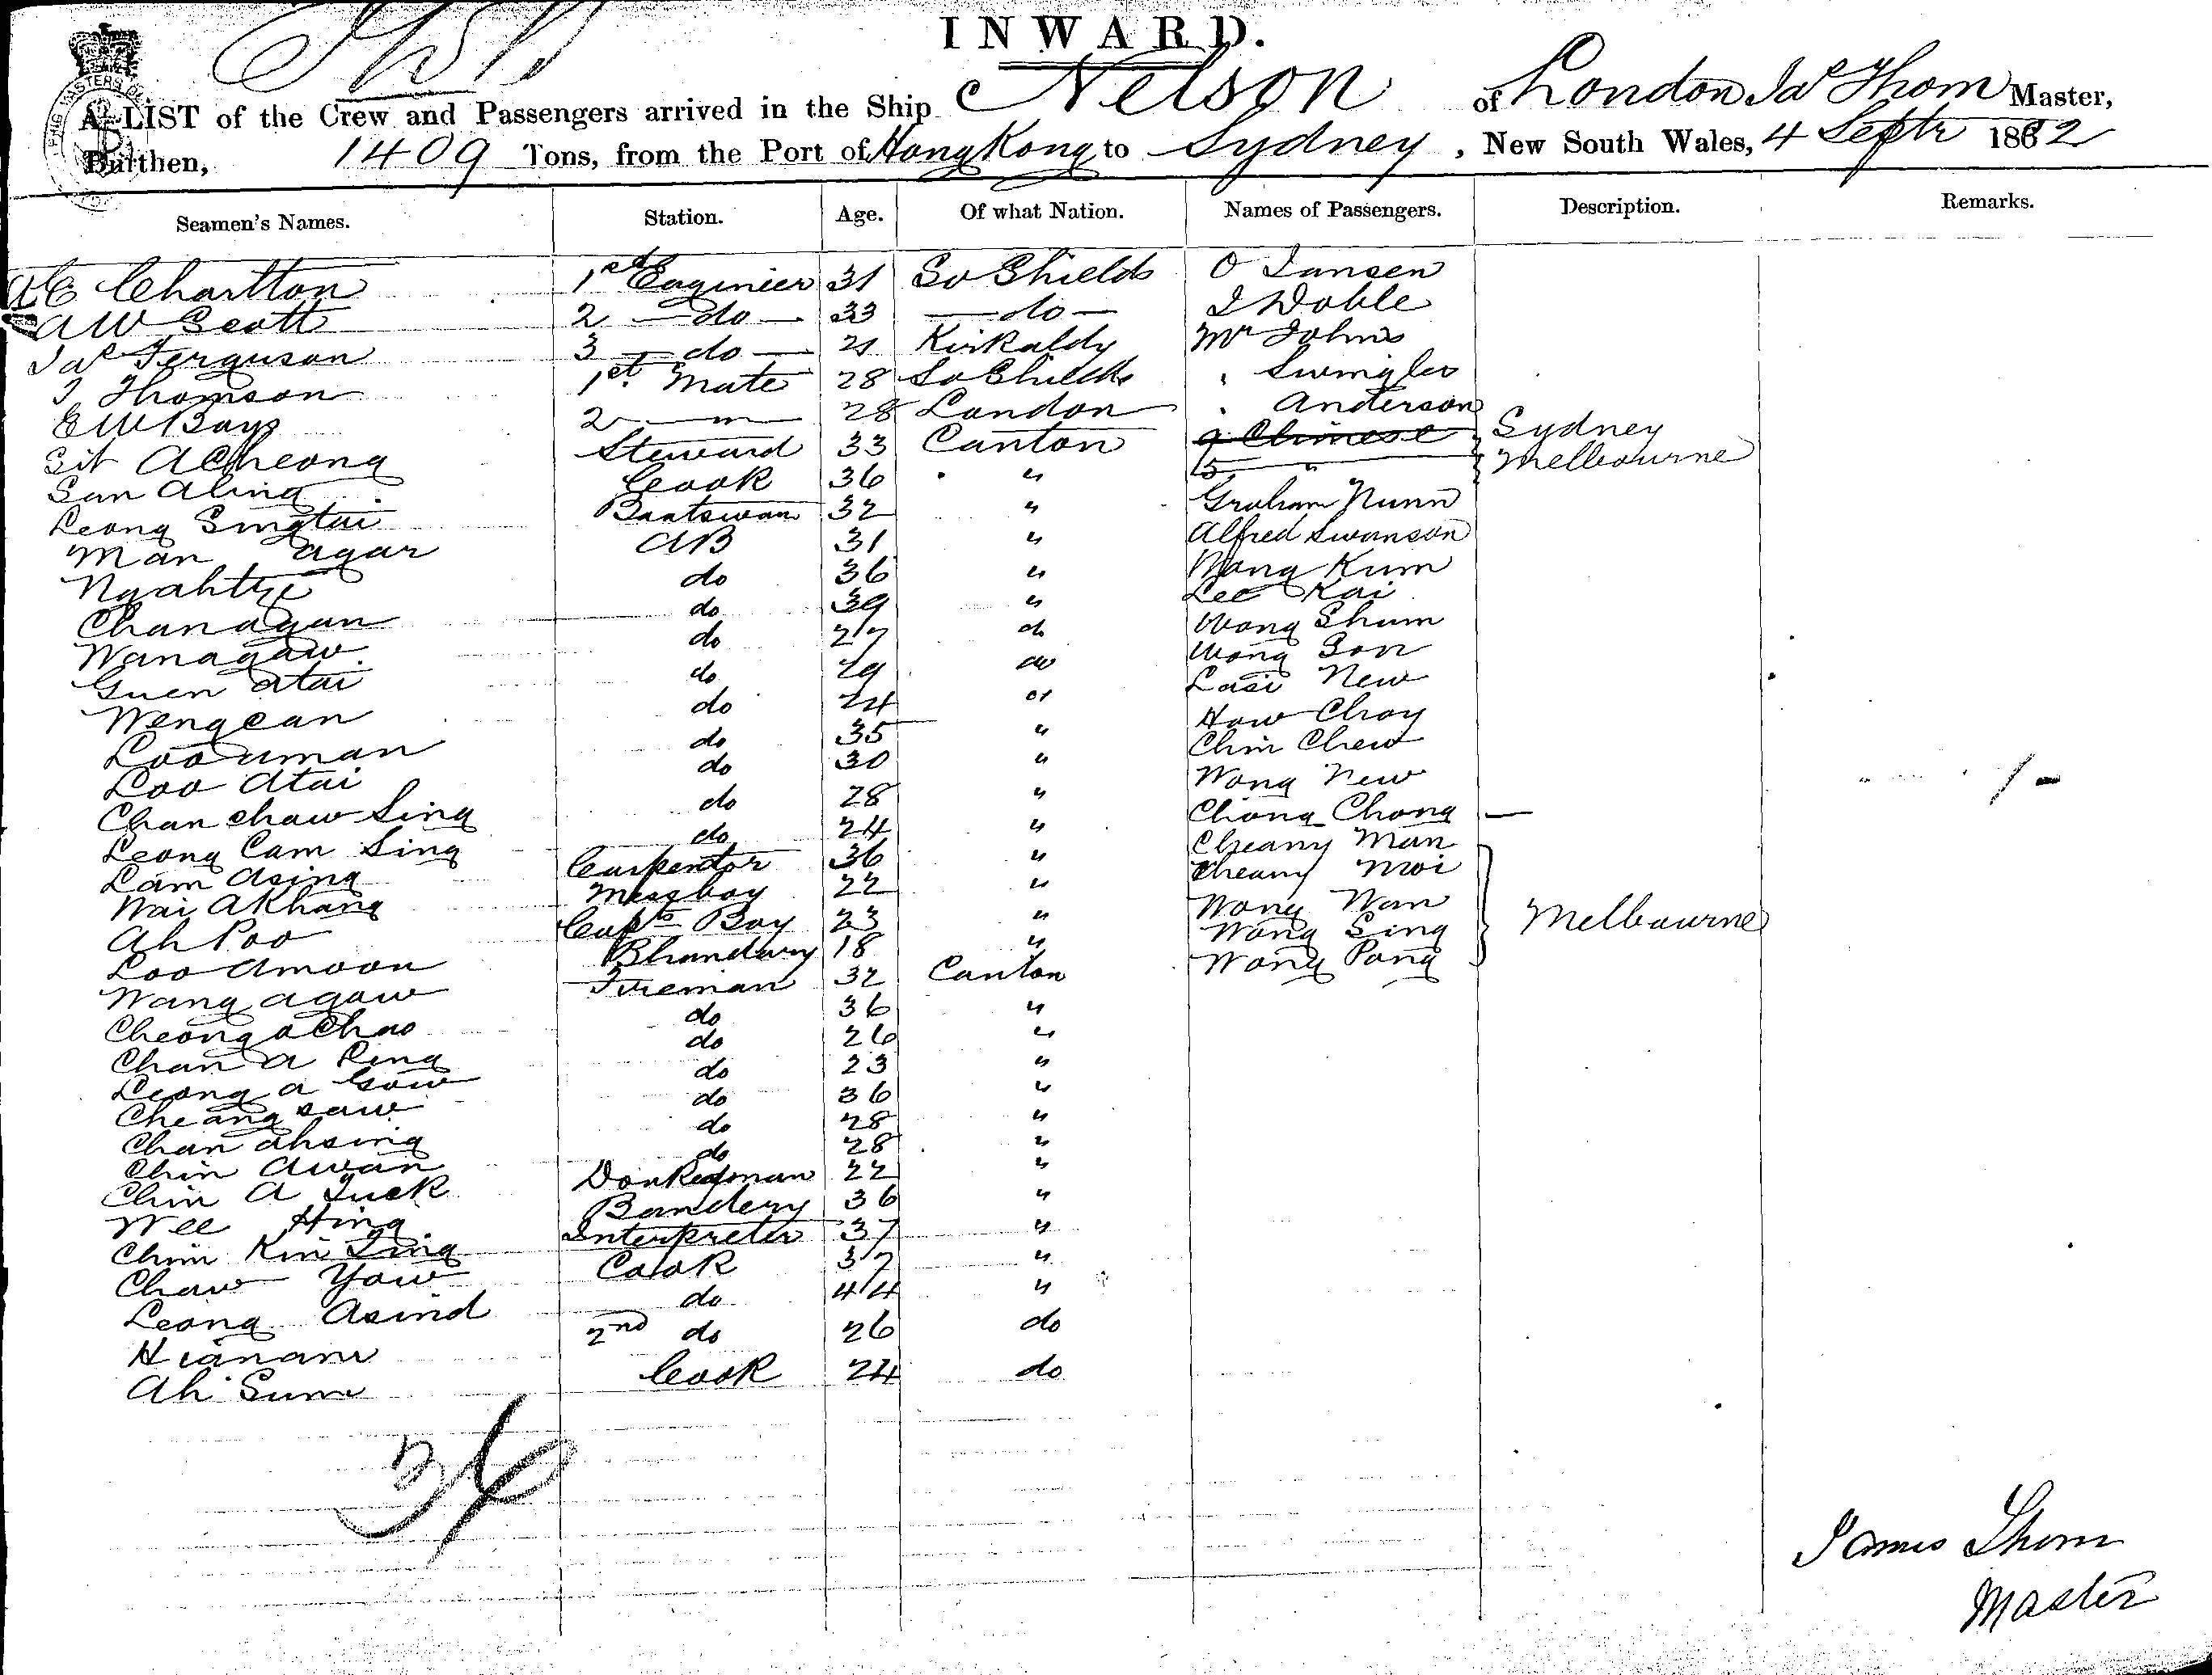 INWARD.
A LIST of the Crew and Passengers arrived in the Ship Nelson of London Jas Thom Master,
Burthen, 1409 Tons, from the Port of Hong Kong to Sydney, New South Wales, 4 Septr 1882
Seamen's Names. Station. Age. Of what Nation. Names of Passengers. Description. Remarks.
A C Charlton 1st Engineer 31 So Shields O Jansen
A W Scott 2 — do — 33 — do — J Doble
Jas Ferguson 3 — do — 21 Kirkaldy Mr Johns
J Thomson 1st Mate 28 So Shields " Swingler
E W Bays 2 — " — 28 London " Anderson
Sit Acheong Steward 33 Canton 9 Chinese Sydney
San Aling Cook 36 " 15 " Melbourne
Leong Singtai Boatswan 32 " Graham Nunn
Man Agar AB 31 " Alfred Swanson
Ngahtzi do 36 " Wong Kum
Chanagun do 39 " Lee Kai
Wanagaw do 27 do Wong Shum
Guen Atai do 29 do Wong Son
Wengean do 24 " Lasi New
Loouman do 35 " How Choy
Loo Atai do 30 " Chin Chew
Chan Chaw Sing do 28 " Wong New
Leong Cam Sing do 24 " Chong Chong —
Lam Asing Carpenter 36 " Cheang Man
Wai Akhang Messboy 22 " Cheang Moi
Ah Poo Capts Boy 23 " Wong Wan Melbourne
Loo Amoon Bhandary 18 " Wong Sing
Wang Agaw Fireman 32 Canton Wong Pong
Cheong Achao do 36 "
Chan A Ping do 26 "
Leong A Gow do 23 "
Cheang Saw do 36 "
Chan Ahsing do 28 "
Chin Awan do 28 "
Chin A Luck Donkeyman 22 "
Wee Hing Bandery 36 "
Chin Kin Ling Interpreter 37 "
Chaw Yow Cook 37 "
Leong Asind do 44 "
Hianam 2nd do 26 do
Ah Sum Cook 24 do
James Thom
Master